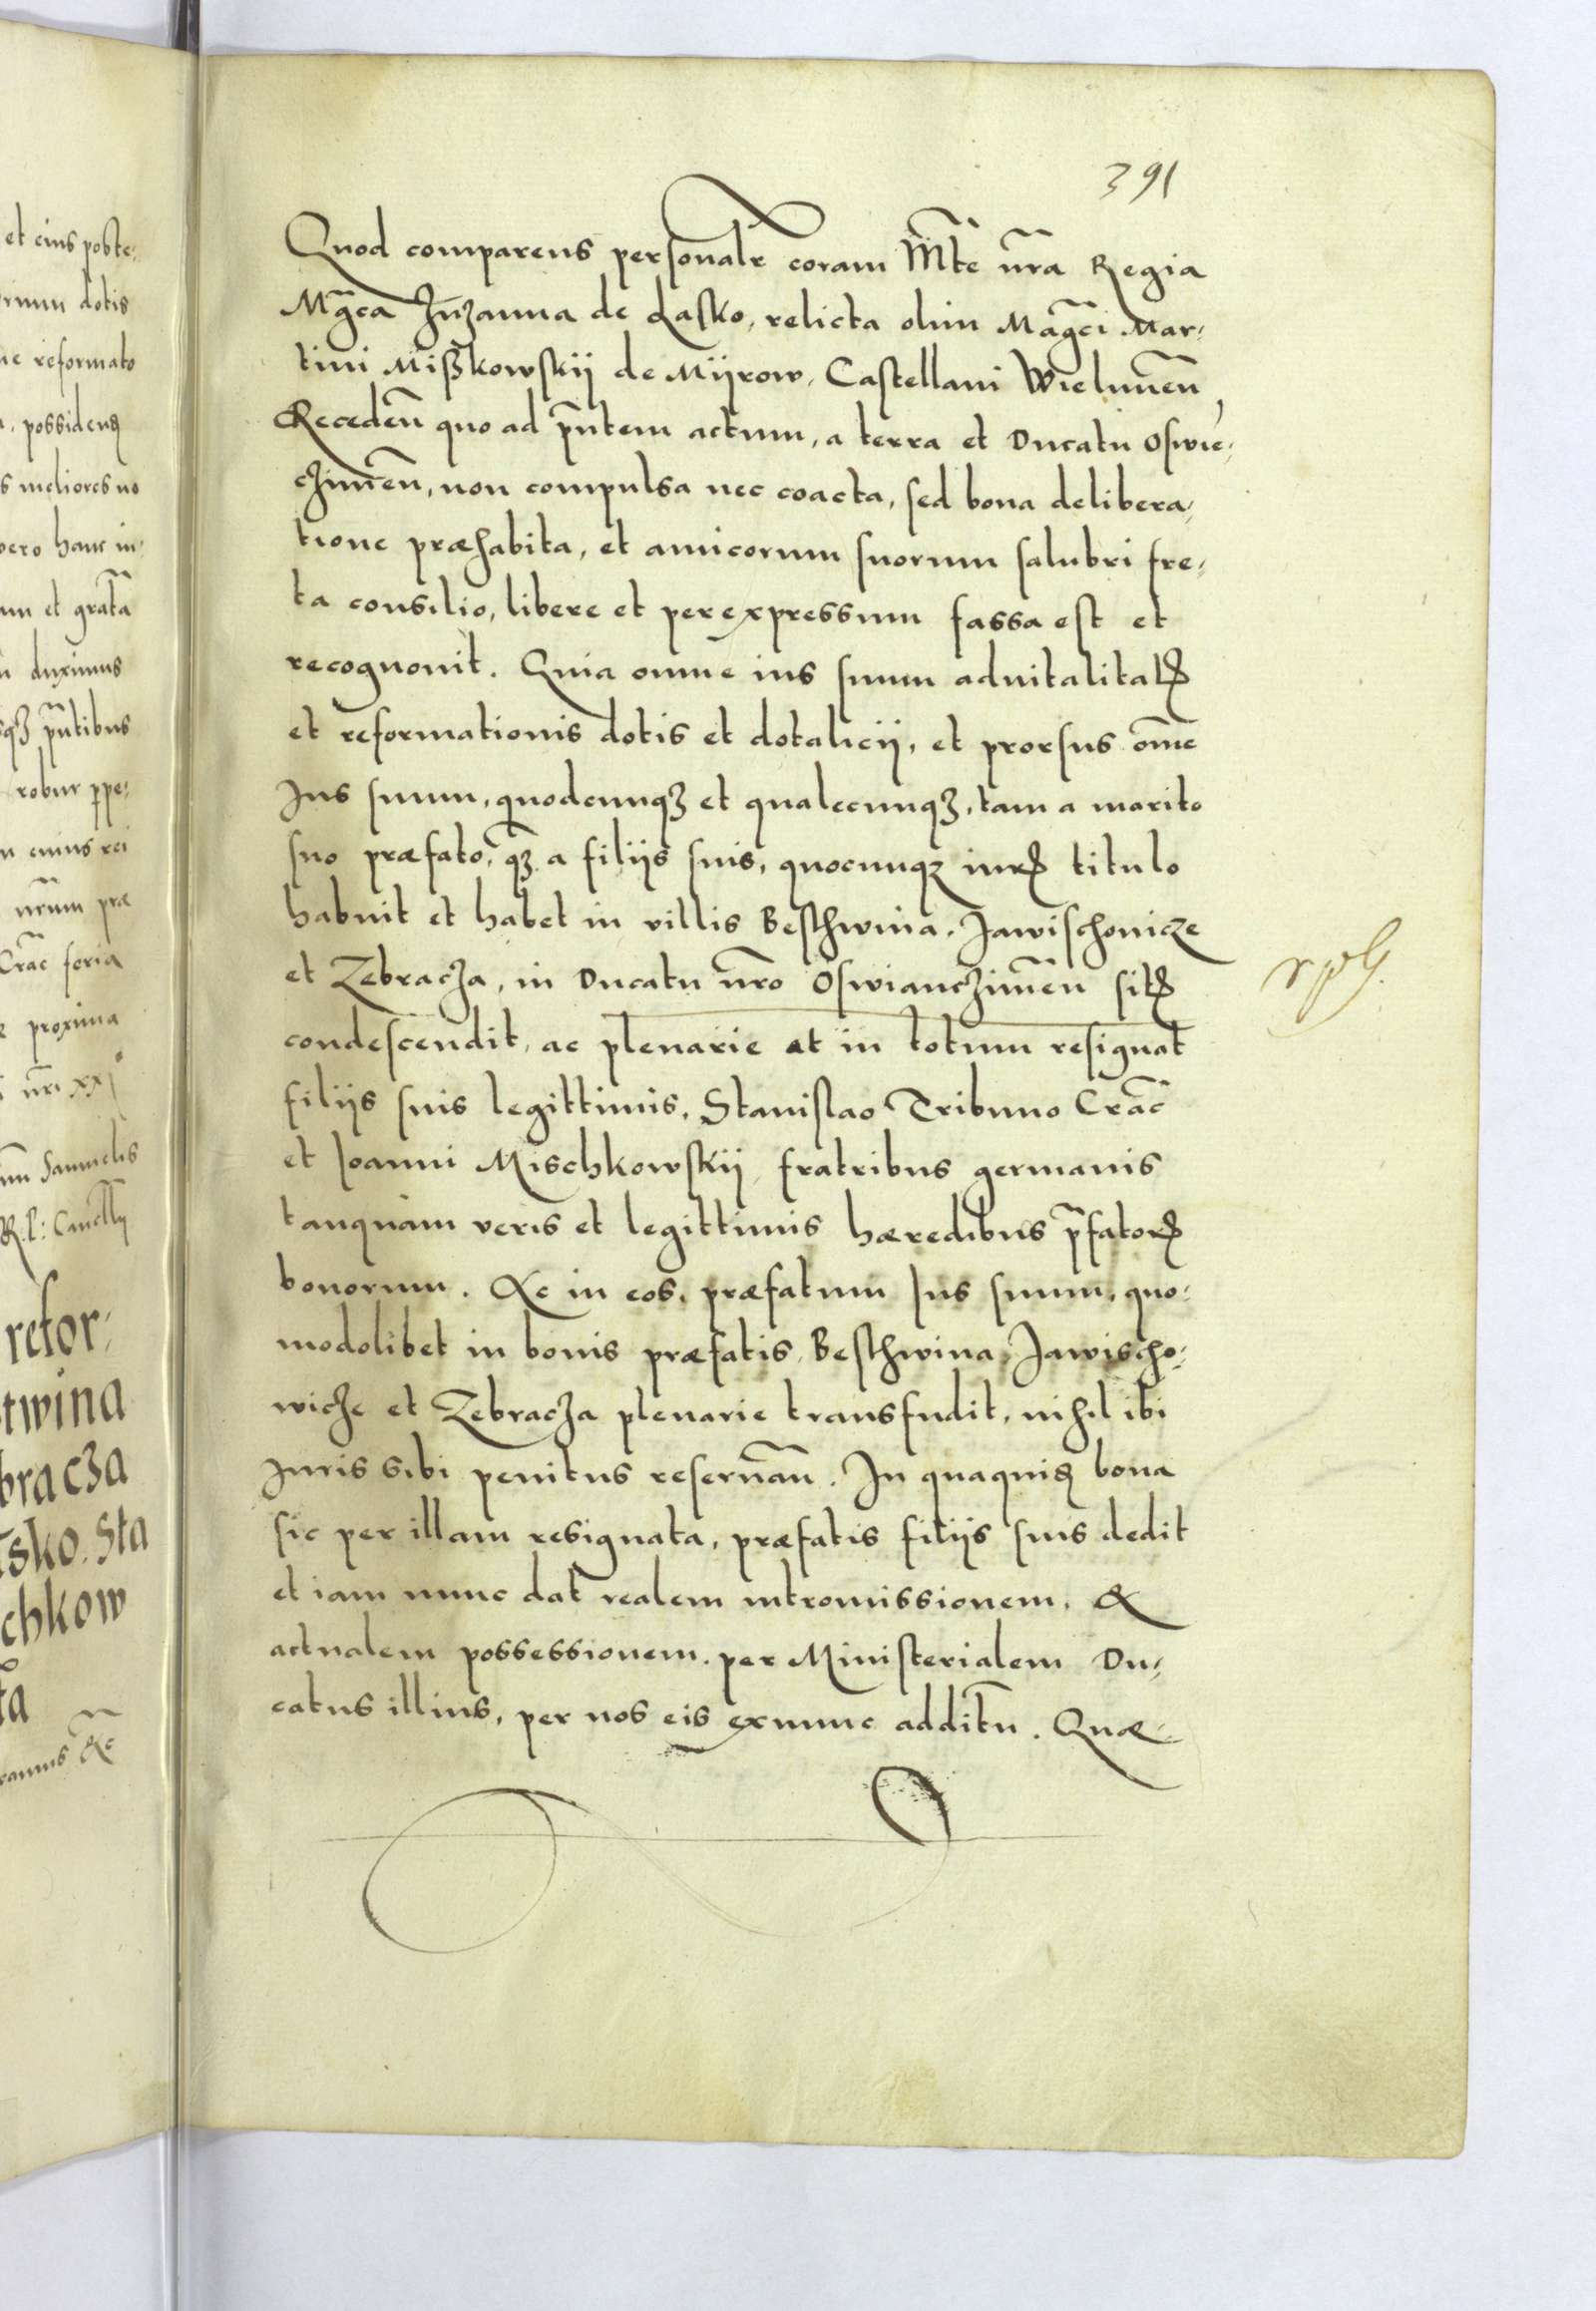 391
Quod comparens personalr coram Mte nra Regia
Mgca Zuzanna de Lasko, relicta olim Magci Mar-
tini Mißkowskij de Mijrow, Castellani Wielunen,
Receden quo ad pntem actum, a terra et Ducatu Oswie-
czimen, non compulsa nec coacta, sed bona delibera-
tione præhabita, et amicorum suorum salubri fre-
ta consilio, libere et per expressum fassa est et
recognouit. Quia omne ius suum aduitalitatꝭ
et reformationis dotis et dotalicij, et prorsus ome
Jus suum, quodcunqȝ et qualecunqȝ, tam a marito
suo præfato, qȝ a filijs suis, quocunqȝ iurꝭ titulo
habuit et habet in villis Besthwina, Jawischonicze
et Zebracza, in Ducatu nro Oswianczimen sitꝭ
condescendit, ac plenarie et in totum resignat
filijs suis legittimis, Stanislao Tribuno Crac
et Joanni Mischkowskij fratribus germanis
tanquam veris et legittimis hæredibus pfatorꝭ
bonorum. Ac in eos, præfatum Jus suum, quo-
modolibet in bonis præfatis, Besthwina, Jawischo-
wicze et Zebracza plenarie transfudit, nihil ibi
Juris sibi penitus reseruan. In quaquidꝭ bona
sic per illam resignata, præfatis filijs suis dedit
et iam nunc dat realem intromissionem, &
actualem possessionem, per Ministerialem Du-
catus illius, per nos eis exnunc additu. Quæ
et eius poste-
dotis
reformato
possidenꝭ
meliores no
vero hanc in-
et grata
duximus
pntibus
robur ppe-
cuius rei
nrum præ
Crac feria
proxima
nri xxj
Samuelis
R. P: Cancllrij
refor-
twina
bracza
sko. Sta
chkow
ta